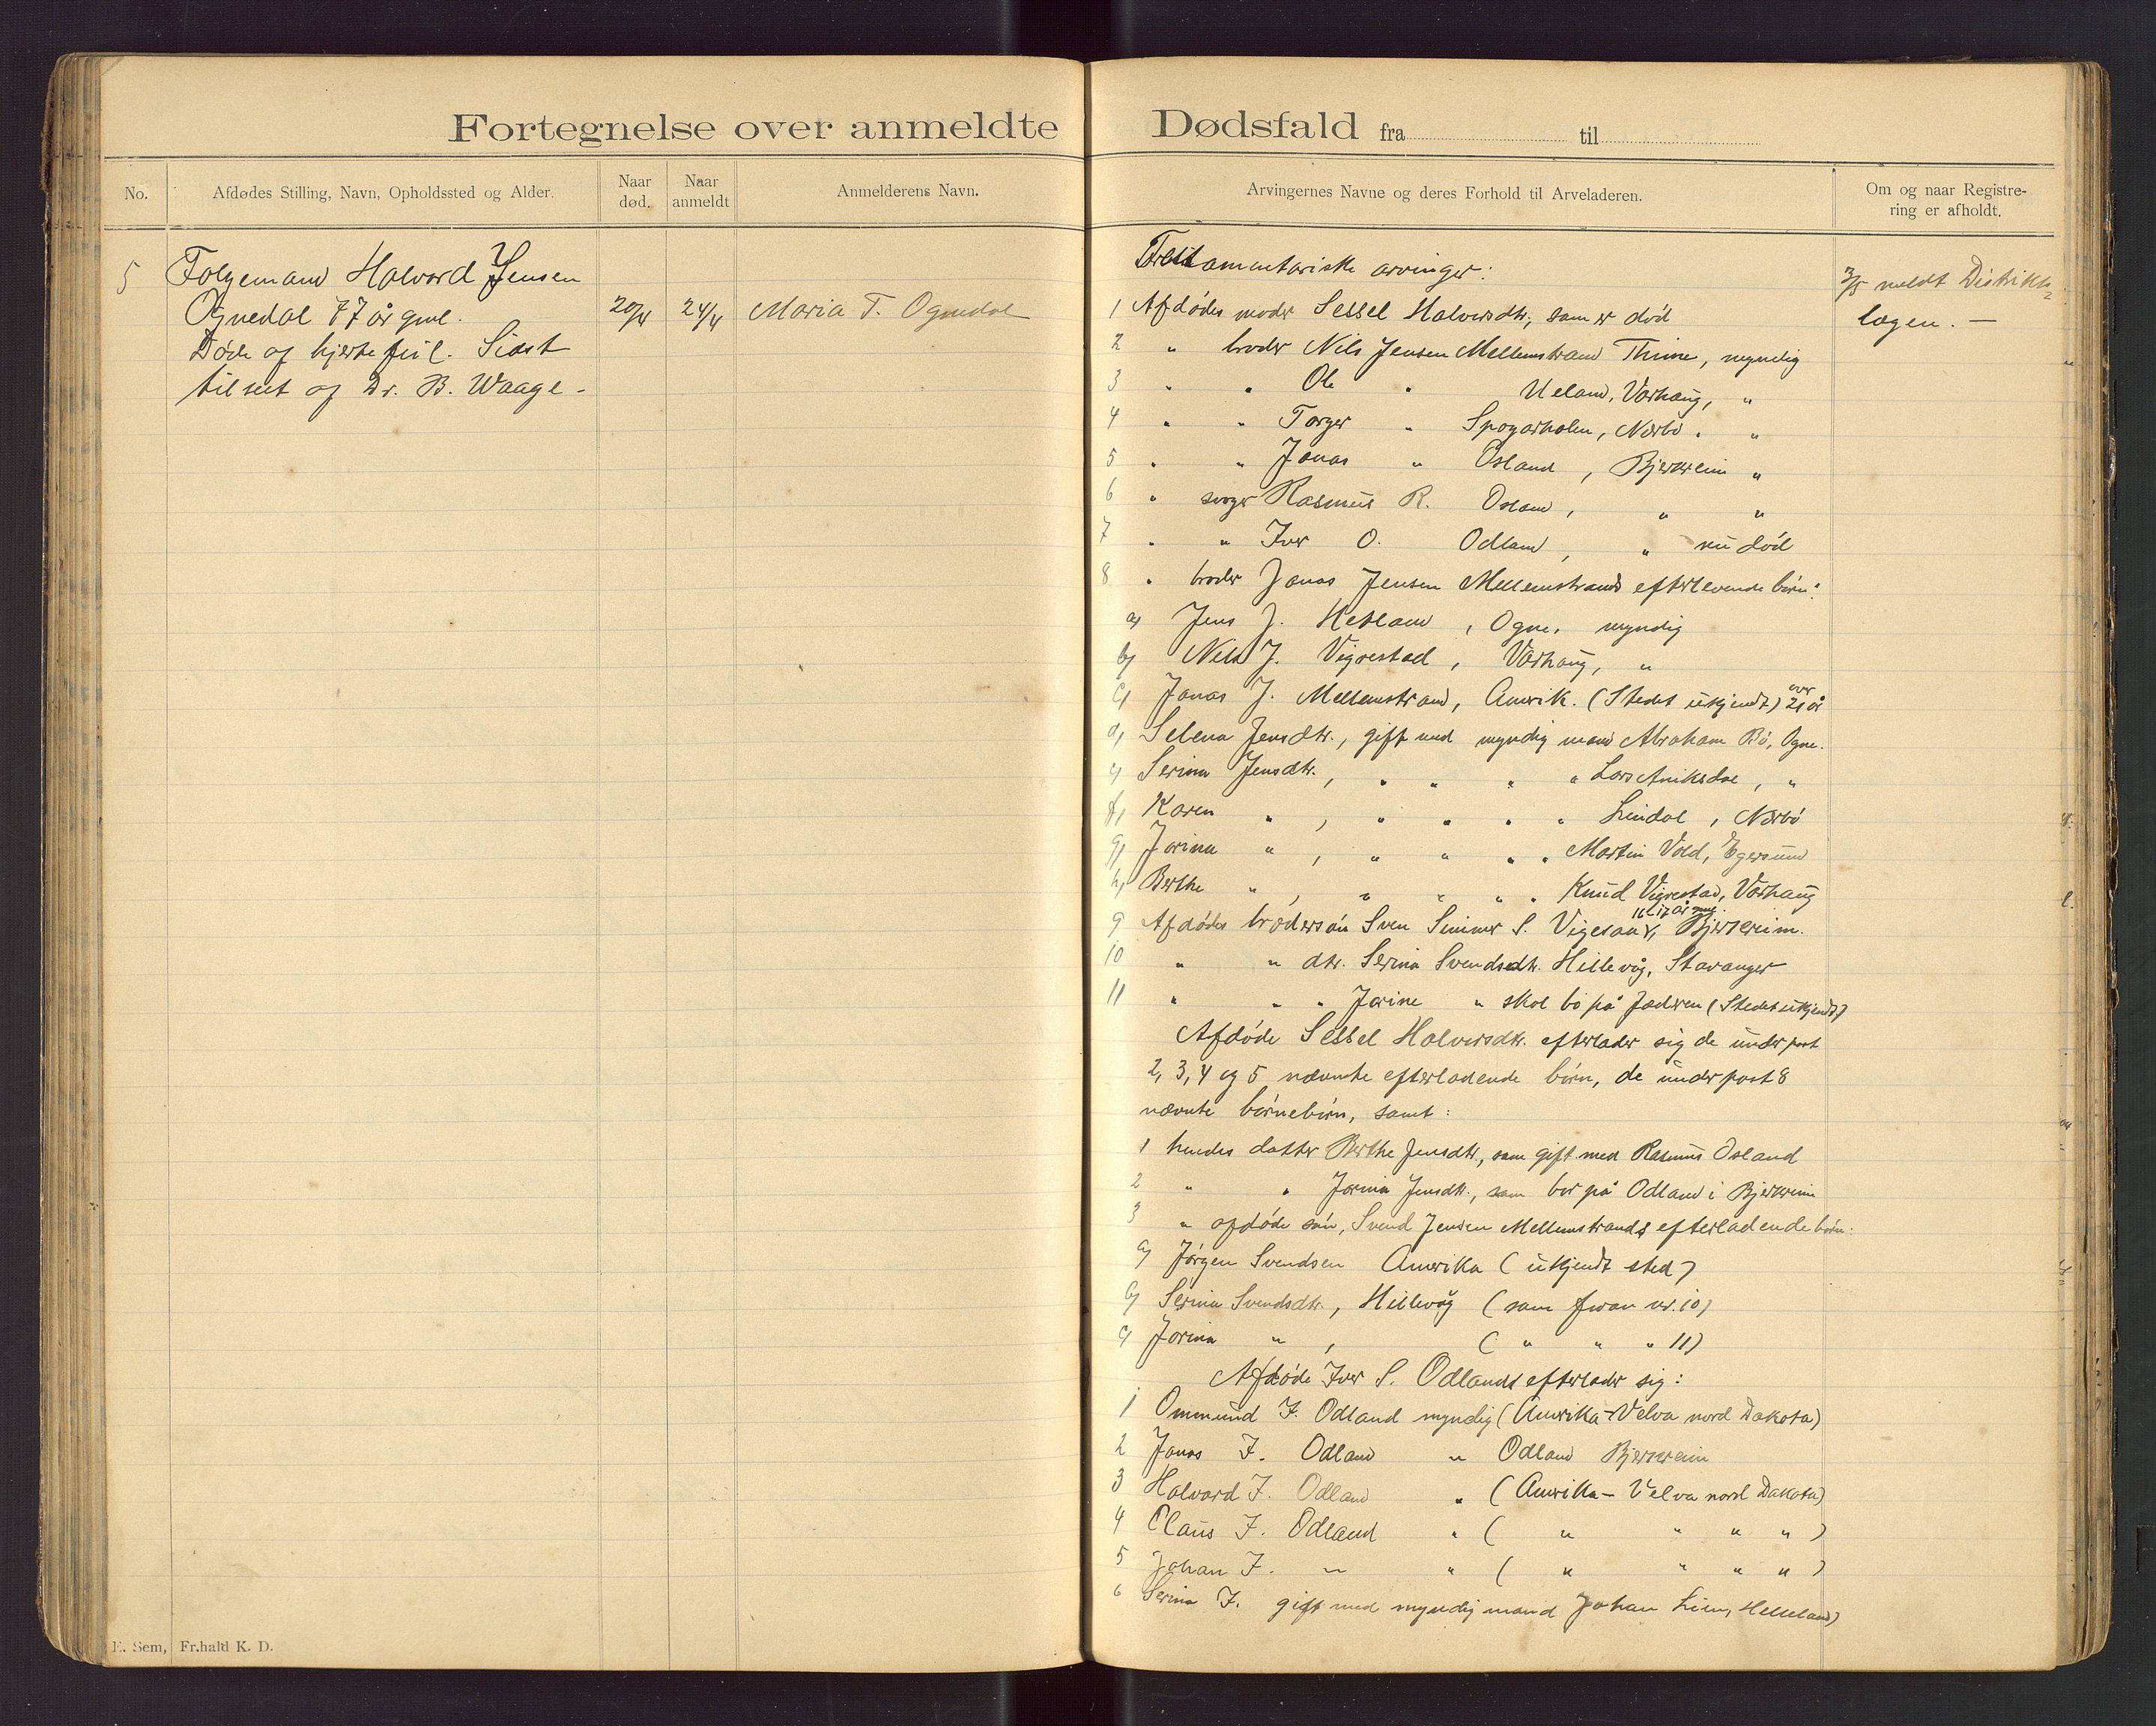 Fortegnelse over anmeldte Dødsfald fra til
No. Afdødes Stilling, Navn, Opholdssted og Alder. Naar død. Naar anmeldt Anmelderens Navn. Arvingernes Navne og deres Forhold til Arveladeren. Om og naar Registrering er afholdt.
5 Folgemand Halvord Jensen
Ognedal 77 år gml. 20/4 24/4 Maria T. Ognedal
Døde af hjertefeil. Sidst
tilseet af Dr. B. Waage -
Testamentariske arvinger:
1 Afdødes moder Sessel Halvorsdtr, som er død
2 " broder Nils Jensen Mellemstrand Thime, myndig
3 " " Ole " Ueland, Varhaug, "
4 " " Torger " Spogarholen, Nærbø. "
5 " " Jonas " Osland, Bjerkreim "
6 " svoger Rasmus R. Osland, " "
7 " " Iver O. Odland, " nu død
8 " broder Jonas Jensen Mellemstrands efterlevende børn:
a) Jens J. Hetland, Ogne, myndig
b) Nils J. Vigrestad, Varhaug, "
c) Jonas J. Mellemstrand, Amerik. (Stedet ukjendt) over 21 år
d) Selena Jensdtr., gift med myndig mand Abraham Bø, Ogne.
e) Serina Jensdtr., " " " " Lars Aniksdal, "
f) Karen " , " " " " Lindal, Nærbø
g) Jorina " , " " " " Martin Vold, Egersund
h) Berthe " , " " " " Knud Vigrestad, Varhaug
9 Afdødes brodersøn Sven Sviner S. Vigesaa, 16 á 17 år gml. Bjerkreim.
10 " " dtr. Serina Svendsdtr. Hillevåg, Stavanger
11 " " " Jorine " skal bo på Jæderen (Stedet ukjendt)
Afdøde Sessel Halvorsdtr. efterlader sig de under post
2, 3, 4 og 5 nævnte efterladende børn, de under post 8
nævnte børnebørn, samt:
1 hendes datter Berthe Jensdtr., som gift med Rasmus Osland
2 " " Jorina Jensdtr., som bor på Odland i Bjerkreim
3 " afdøde søn, Svend Jensen Mellemstrands efterladende børn:
a) Jørgen Svendsen Amerika (ukjendt sted)
b) Serina Svendsdtr., Hillevåg (som foran nr. 10)
c) Jorina " , ( " " " 11)
Afdøde Iver S. Odlands efterlader sig:
1 Ommund I. Odland myndig (Amerika - Velva nord Dakota)
2 Jonas I. Odland " Odland Bjerkreim
3 Halvord I. Odland " (Amerika - Velva nord Dakota)
4 Claus I. Odland " ( " " " " )
5 Johan I. " " ( " " " " )
6 Serina I. gift med myndig mand Johan Liem, Helleland)
3/5 meldt Distrikts
lægen. —
E. Sem, Fr.hald K. D.